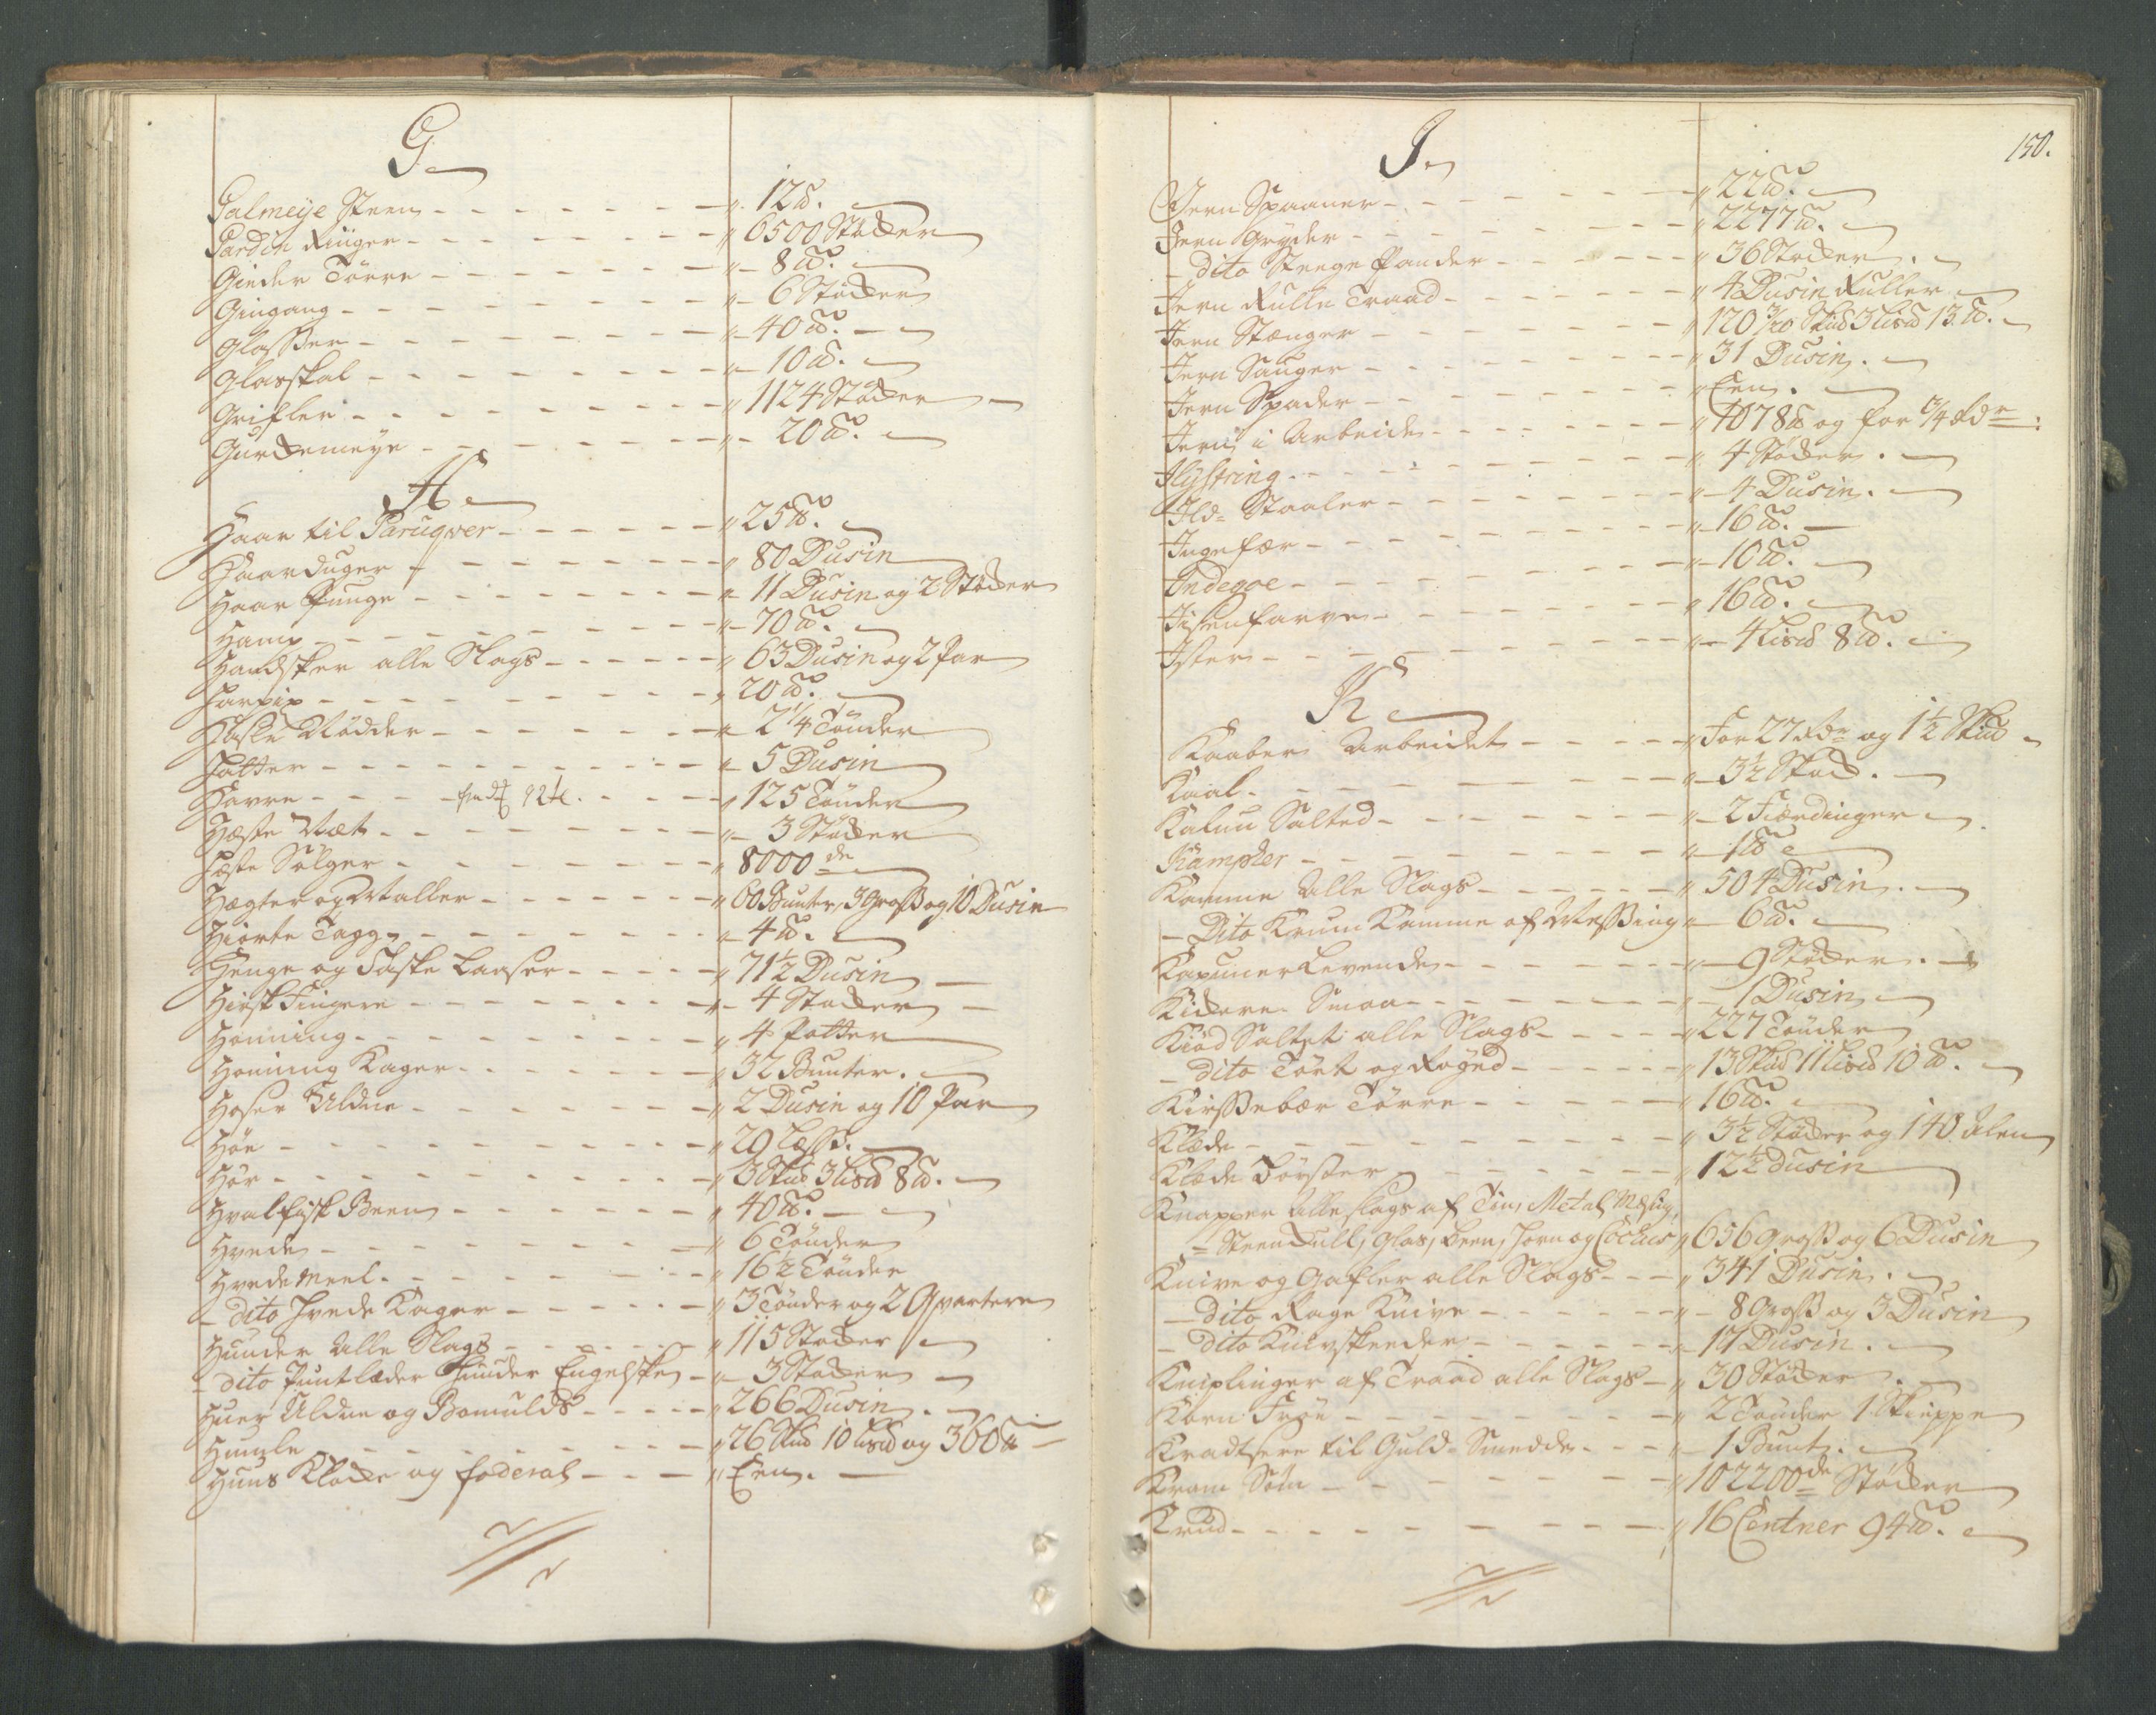 G.
Galmeye Steen - - - " 12 ℔.
Gardin Ringer - - - " 6500 Støkker
Gieder Tørre - - - " 8 ℔.
Gingang - - - " 6 Støkker
Glasser - - - " 40 ℔.
Glasskal - - - " 10 ℔.
Grifler - - - " 1124 Støkker
Gurkemeye - - - " 20 ℔.
H.
Haar til Paruqver - - - " 25 ℔.
Haarduger - - - " 80 Dusin
Haar Punge - - - " 11 Dusin og 2 Støkker
Hamp - - - " 70 ℔.
Handsker alle Slags - - - " 63 Dusin og 2 Par
Harpix - - - " 20 ℔.
Hasle Nødder - - - " 2 1/4 Tønder
Hatter - - - " 5 Dusin
Havre - - - - - - " 125 Tønder
Hæste - - - " 3 Støkker
Hæste Sølger - - - " 8000 de
Hægter og Maller - - - " 60 Bunter, 3 Gross og 10 Dusin
Hiorte Tagg - - - " 4 ℔.
Henge og Taske Laaser - - - " 71 1/2 Dusin
Hirsk Fingere - - - " 4 Støkker
Honning - - - " 4 Potter
Honning Kager - - - " 32 Bunter.
Hoser Uldne - - - " 2 Dusin og 10 Par
Høe - - - " 29 Læss.
Hør - - - " 3 Sk℔ 3 Lis℔ 8 ℔.
Hvalfisk Been - - - " 40 ℔.
Hvede - - - " 6 Tønder
Hvede Meel - - - " 16 1/2 Tønder
- dito Hvede Kager - - - " 3 Tønder og 2 Qvartere
Hunder Alle Slags - - - " 115 Støkker
- dito Huder Engelske - " 3 Støkker
Huer Uldne og Bomulds - - - " 266 Dusin.
Humle - - - " 26 Sk℔ 10 Lis℔ og 360 ℔
Huus Klokke og foderal - - - " Een.
150.
J.
Jern Spaaner - - - " 22 ℔.
Jern Gryder - - - " 2277 ℔.
- dito Steege Pander - - - " 36 Støkker.
Jern Rulle Traad - - - " 4 Dusin Ruller
Jern Stænger - - - " 120 3/20 Sk℔ 3 Lis℔ 13 ℔.
Jern Sauger - - - " 31 Dusin.
Jern Spader - - - " Een.
Jern i Arbeide - - - " 1078 ℔ og for 14 Rdr:
- - - " 4 Støkker.
Ild-Staaler - - - " 4 Dusin.
Ingefær - - - " 16 ℔.
Indegoe - - - " 10 ℔.
Jisenfarve - - - " 16 ℔.
Ister - - - " 4 Lis℔ 8 ℔.
K.
Kaaber Arbeidet - - - " For 27 Rdr og 1 1/2 Sk℔
Kaal - - - " 3 1/2 Skok.
Kalun Salted - - - " 2 Fierdinger
Kampher - - - " 1 ℔
Kamme Alle Slags - - - " 504 Dusin.
- Dito Krum Kamme af Messing " 6 ℔.
Kapuner Levende - - - " 9 Støkker.
Kikkere Smaa - - - " 1 Dusin
Kiød Saltet alle Slags - - - " 227 Tønder
- dito Tørt og Røged - - - " 13 Sk℔ 11 Lis℔ 10 ℔.
Kirssebær Tørre - - - " 16 ℔.
Klæde - - - " 3 1/2 Støkker og 140 Alen
Klæde Børster - - - " 12 1/2 Dusin
Knapper Alle slags af Tin, Metal, Messing,
Steenkull, Glas, Been, Horn og Cochus " 656 Gross og 6 Dusin
Knive og Gafler alle Slags - - - " 341 Dusin.
- dito Rage Knive - - - " 8 Gross og 3 Dusin
- dito Knivskeeder - - - " 17 Dusin.
Kniplinger af Traad alle Slags - " 30 Støkker
Korn Frøe - - - " 2 Tønder 1 Skieppe
Kradtsere til Guld-Smedde - - - " 1 Bunt.
Kram Søm - - - " 102200 de Støkker
Krud - - - " 16 Centner 94 ℔.